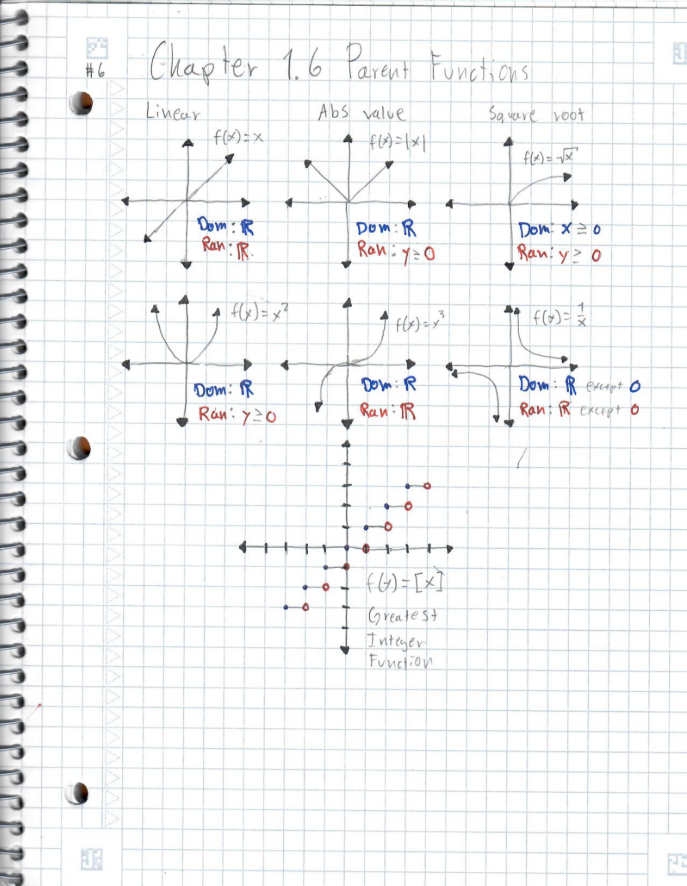 #6 Chapter 1.6 Parent Functions
Linear
f(x)=x
Dom: ℝ
Ran: ℝ.
Abs value
f(x)=|x|
Dom: ℝ
Ran: y≥0
Square root
f(x)=√x
Dom: x ≥ 0
Ran: y ≥ 0
f(x)=x²
Dom: ℝ
Ran: y≥0
f(x)=x³
Dom: ℝ
Ran: ℝ
f(x)=1/x
Dom: ℝ except 0
Ran: ℝ except 0
f(x)=[x]
Greatest
Integer
Function